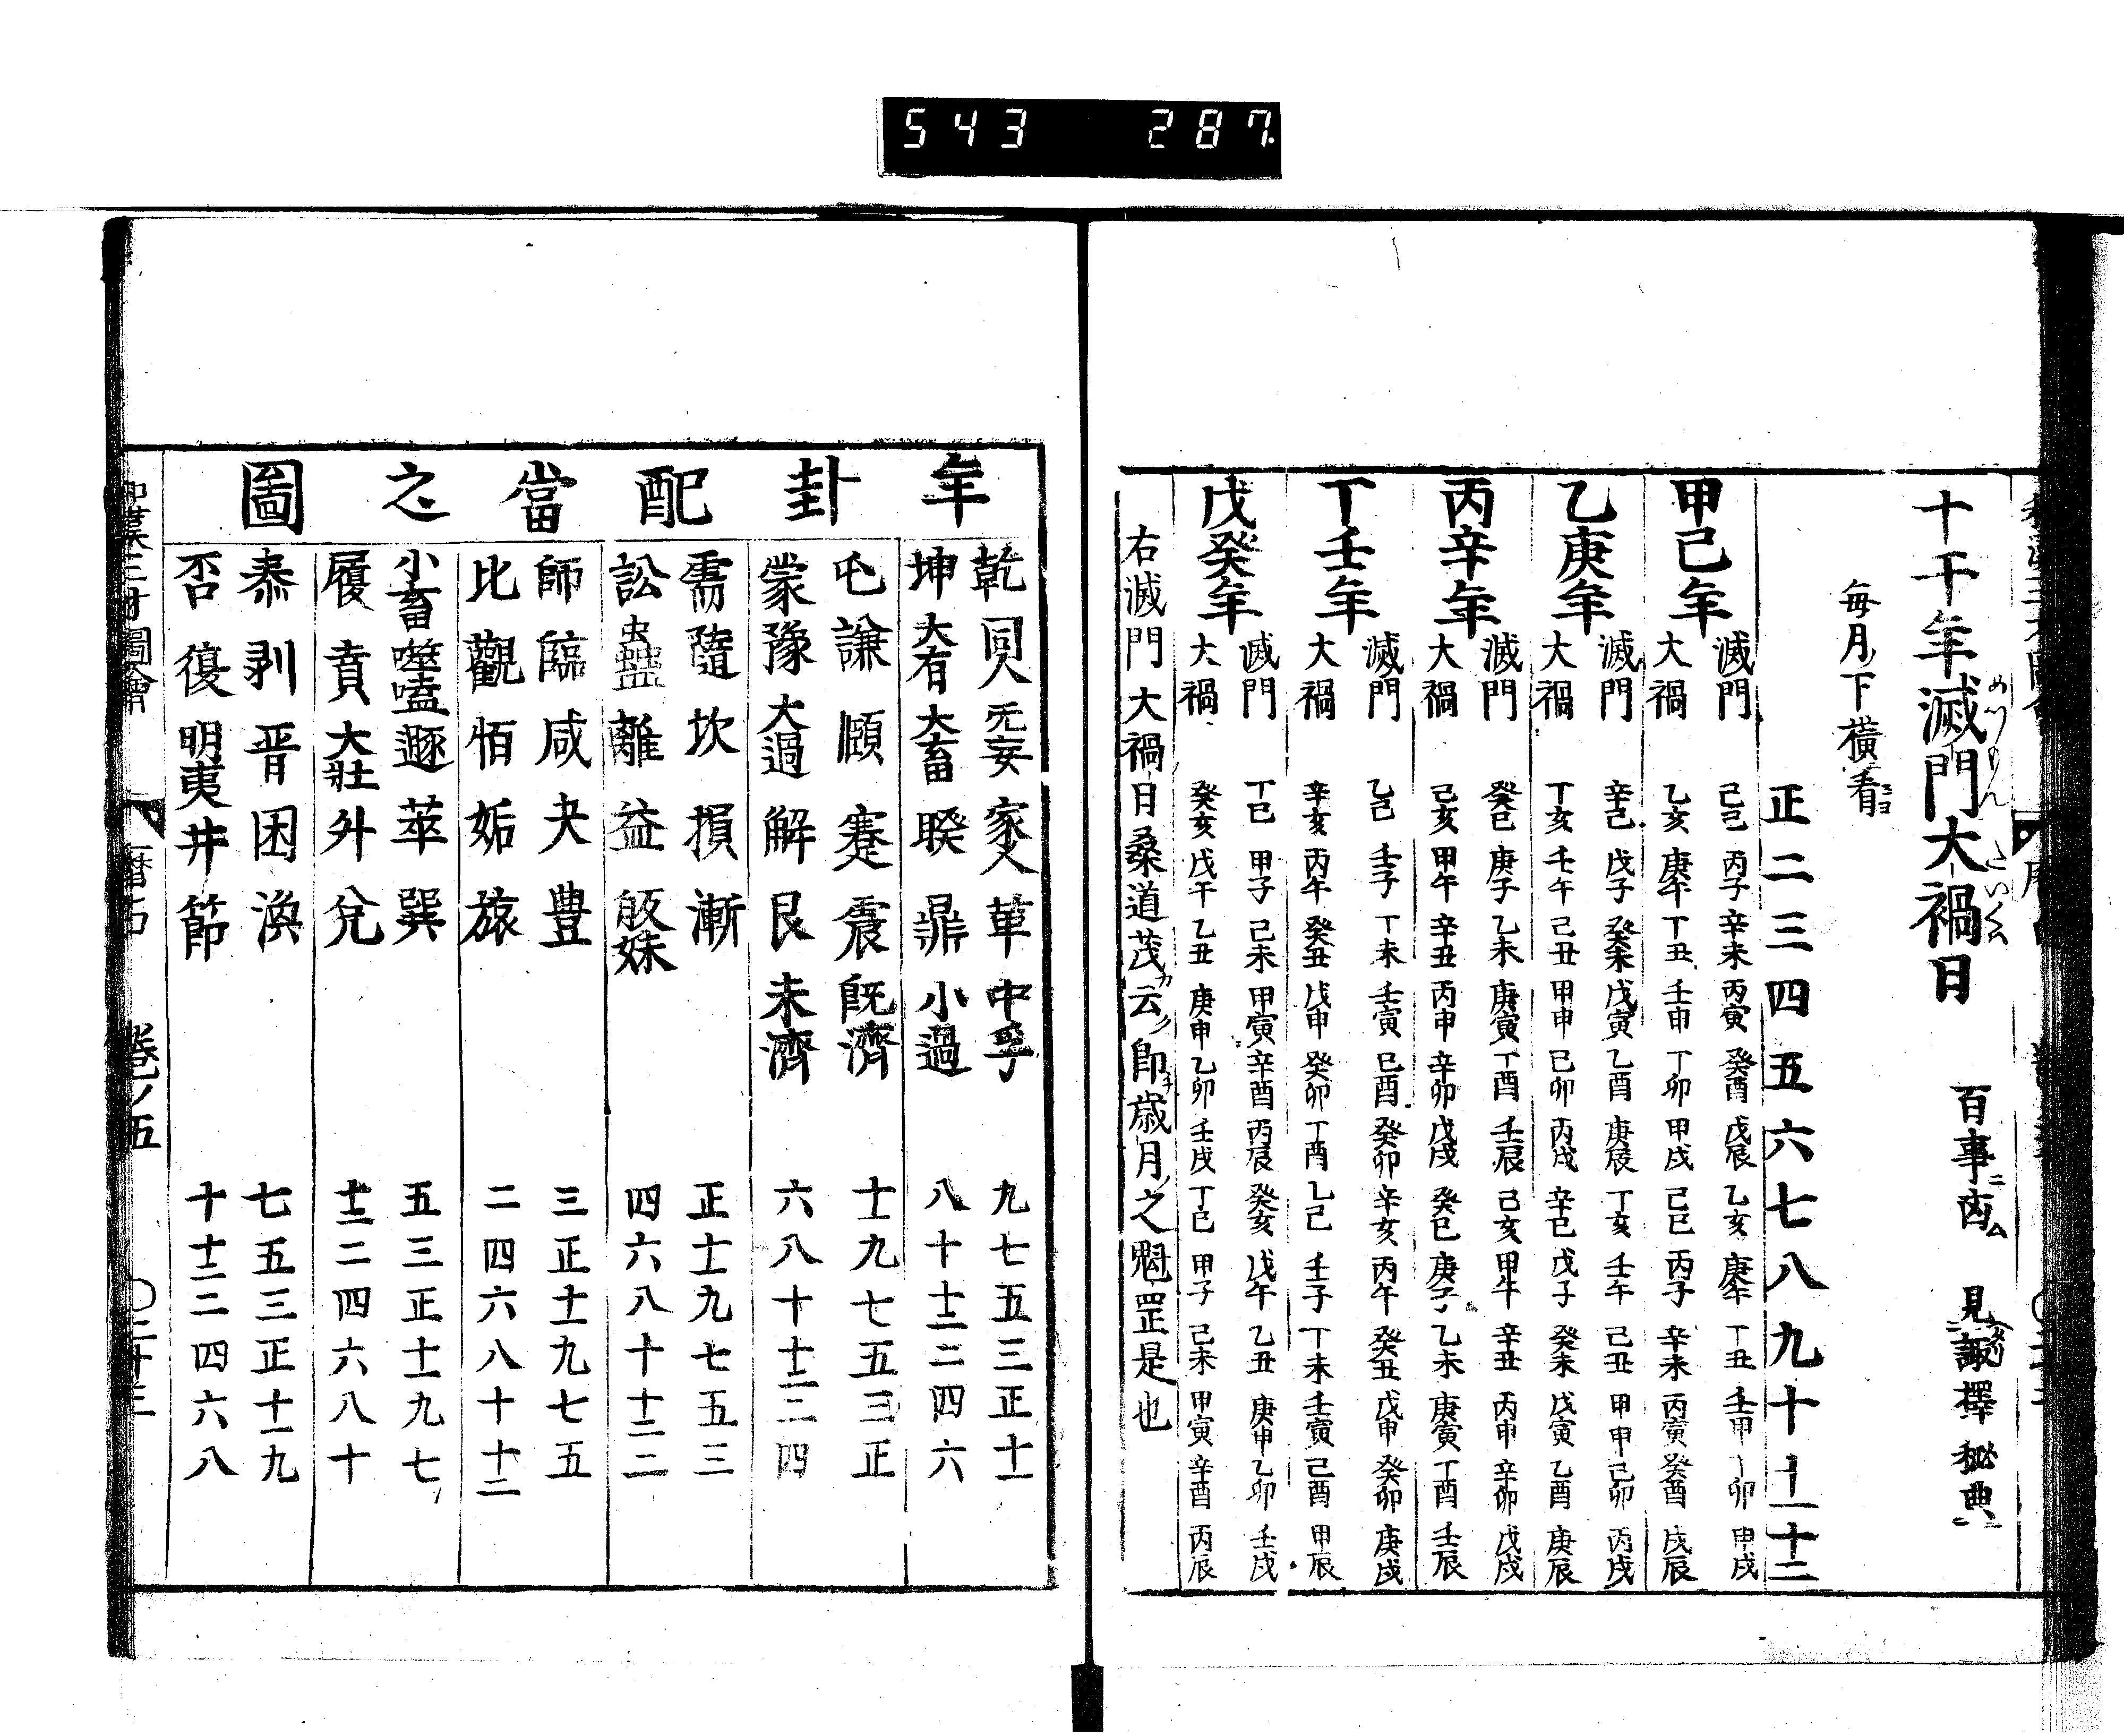 543 287
十干年滅門大禍日 百事ニ凶ム 見諏擇秘典ニ
めつもん たいくハ
毎月ノ下横ニ看ヨ
正 二 三 四 五 六 七 八 九 十 十一 十二
甲己年
滅門 己巳 丙子 辛未 丙寅 癸酉 戊辰 乙亥 庚午 丁丑 壬申 卯 甲戌
大禍 乙亥 庚午 丁丑 壬申 丁卯 甲戌 己巳 丙子 辛未 丙寅 癸酉 戊辰
乙庚年
滅門 辛巳 戊子 癸未 戊寅 乙酉 庚辰 丁亥 壬午 己丑 甲申 己卯 丙戌
大禍 丁亥 壬午 己丑 甲申 己卯 丙戌 辛巳 戊子 癸未 戊寅 乙酉 庚辰
丙辛年
滅門 癸巳 庚子 乙未 庚寅 丁酉 壬辰 己亥 甲午 辛丑 丙申 辛卯 戊戌
大禍 己亥 甲午 辛丑 丙申 辛卯 戊戌 癸巳 庚子 乙未 庚寅 丁酉 壬辰
丁壬年
滅門 乙巳 壬子 丁未 壬寅 己酉 癸卯 辛亥 丙午 癸丑 戊申 癸卯 庚戌
大禍 辛亥 丙午 癸丑 戊申 癸卯 丁酉 乙巳 壬子 丁未 壬寅 己酉 甲辰
戊癸年
滅門 丁巳 甲子 己未 甲寅 辛酉 丙辰 癸亥 戊午 乙丑 庚申 乙卯 壬戌
大禍 癸亥 戊午 乙丑 庚申 乙卯 壬戌 丁巳 甲子 己未 甲寅 辛酉 丙辰
右滅門大禍日桑道茂カ云ク即チ歳月ノ之魁罡是也
年卦配當之圖
乾 同人 无妄 家人 革 中孚 九 七 五 三 正 十一
坤 大有 大畜 睽 鼎 小過 八 十 十二 二 四 六
屯 謙 頤 蹇 震 既濟 十一 九 七 五 三 正
蒙 豫 大過 解 艮 未濟 六 八 十 十二 二 四
需 隨 坎 損 漸 正 十一 九 七 五 三
訟 蠱 離 益 皈妹 四 六 八 十 十二 二
師 臨 咸 夬 豊 三 正 十一 九 七 五
比 觀 恒 姤 旅 二 四 六 八 十 十二
小畜 噬嗑 遯 萃 巽 五 三 正 十一 九 七
履 賁 大壯 升 兌 十二 二 四 六 八 十
泰 剥 晋 困 渙 七 五 三 正 十一 九
否 復 明夷 井 節 十 十二 二 四 六 八
三才圖會 暦占 卷ノ五 〇二十三